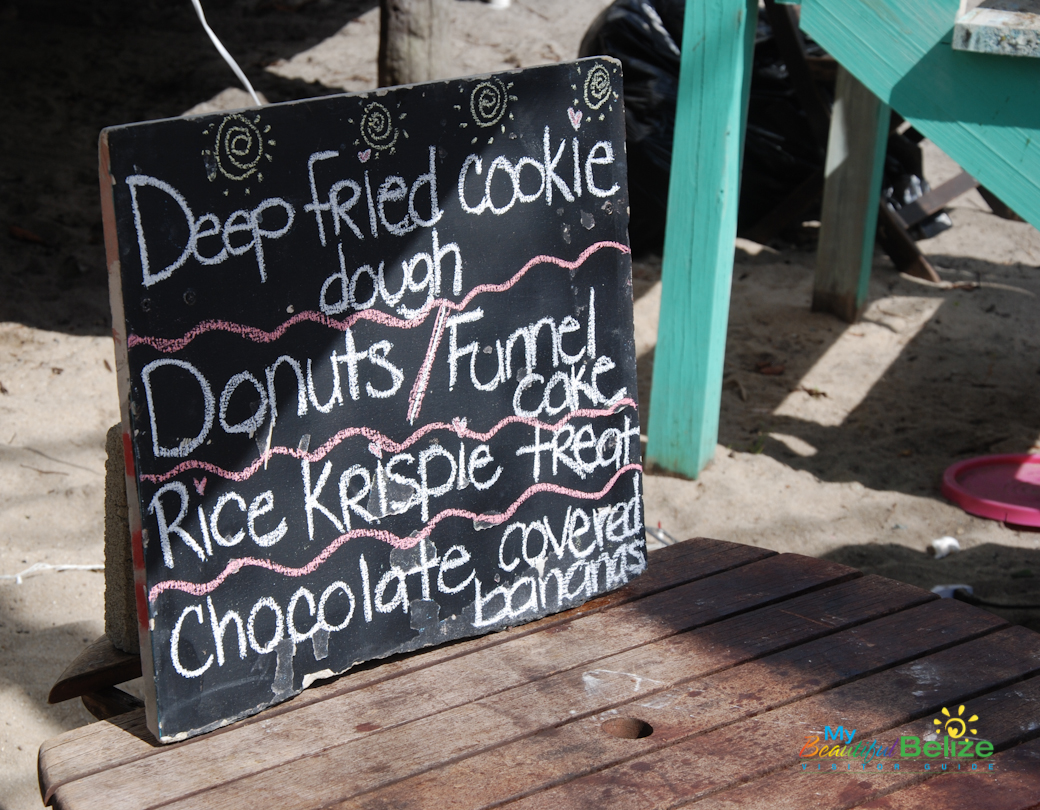 Deep fried cookie
dough
Donuts / Funnel
cake
Rice Krispie treat
Chocolate covered
bananas
My
Beautiful Belize
VISITOR GUIDE